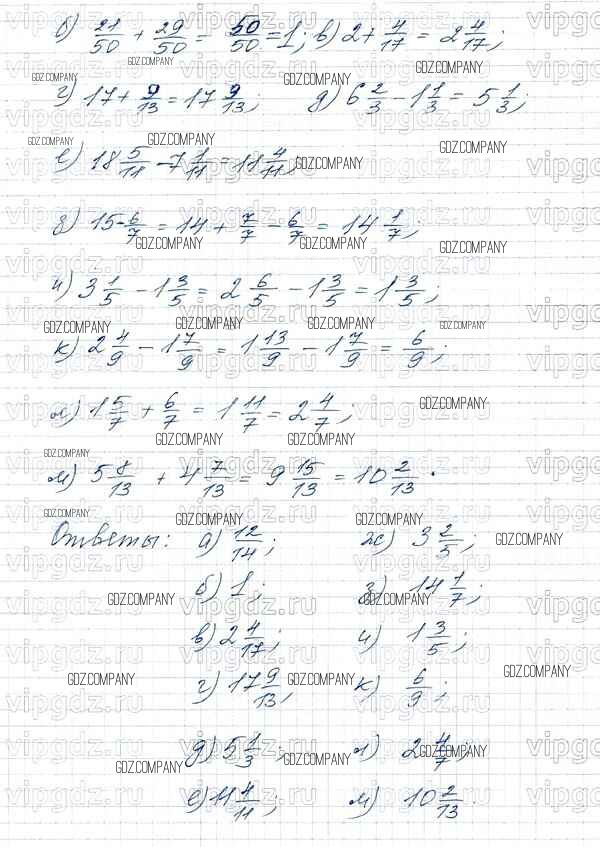 б) 21/50 + 29/50 = 50/50 = 1; в) 2 + 4/17 = 2 4/17;
г) 17 + 9/13 = 17 9/13; д) 6 2/3 - 1 1/3 = 5 1/3;
е) 18 5/11 - 7 1/11 = 11 4/11;
з) 15 - 6/7 = 14 + 7/7 - 6/7 = 14 1/7;
и) 3 1/5 - 1 3/5 = 2 6/5 - 1 3/5 = 1 3/5;
к) 2 4/9 - 1 7/9 = 1 13/9 - 1 7/9 = 6/9;
л) 1 5/7 + 6/7 = 1 11/7 = 2 4/7;
м) 5 8/13 + 4 7/13 = 9 15/13 = 10 2/13.
Ответы: а) 12/14; ж) 3 2/5;
б) 1; з) 14 1/7;
в) 2 4/17; и) 1 3/5;
г) 17 9/13; к) 6/9;
д) 5 1/3; л) 2 4/7;
е) 11 4/11; м) 10 2/13.
vipgdz.ru
GDZ.COMPANY